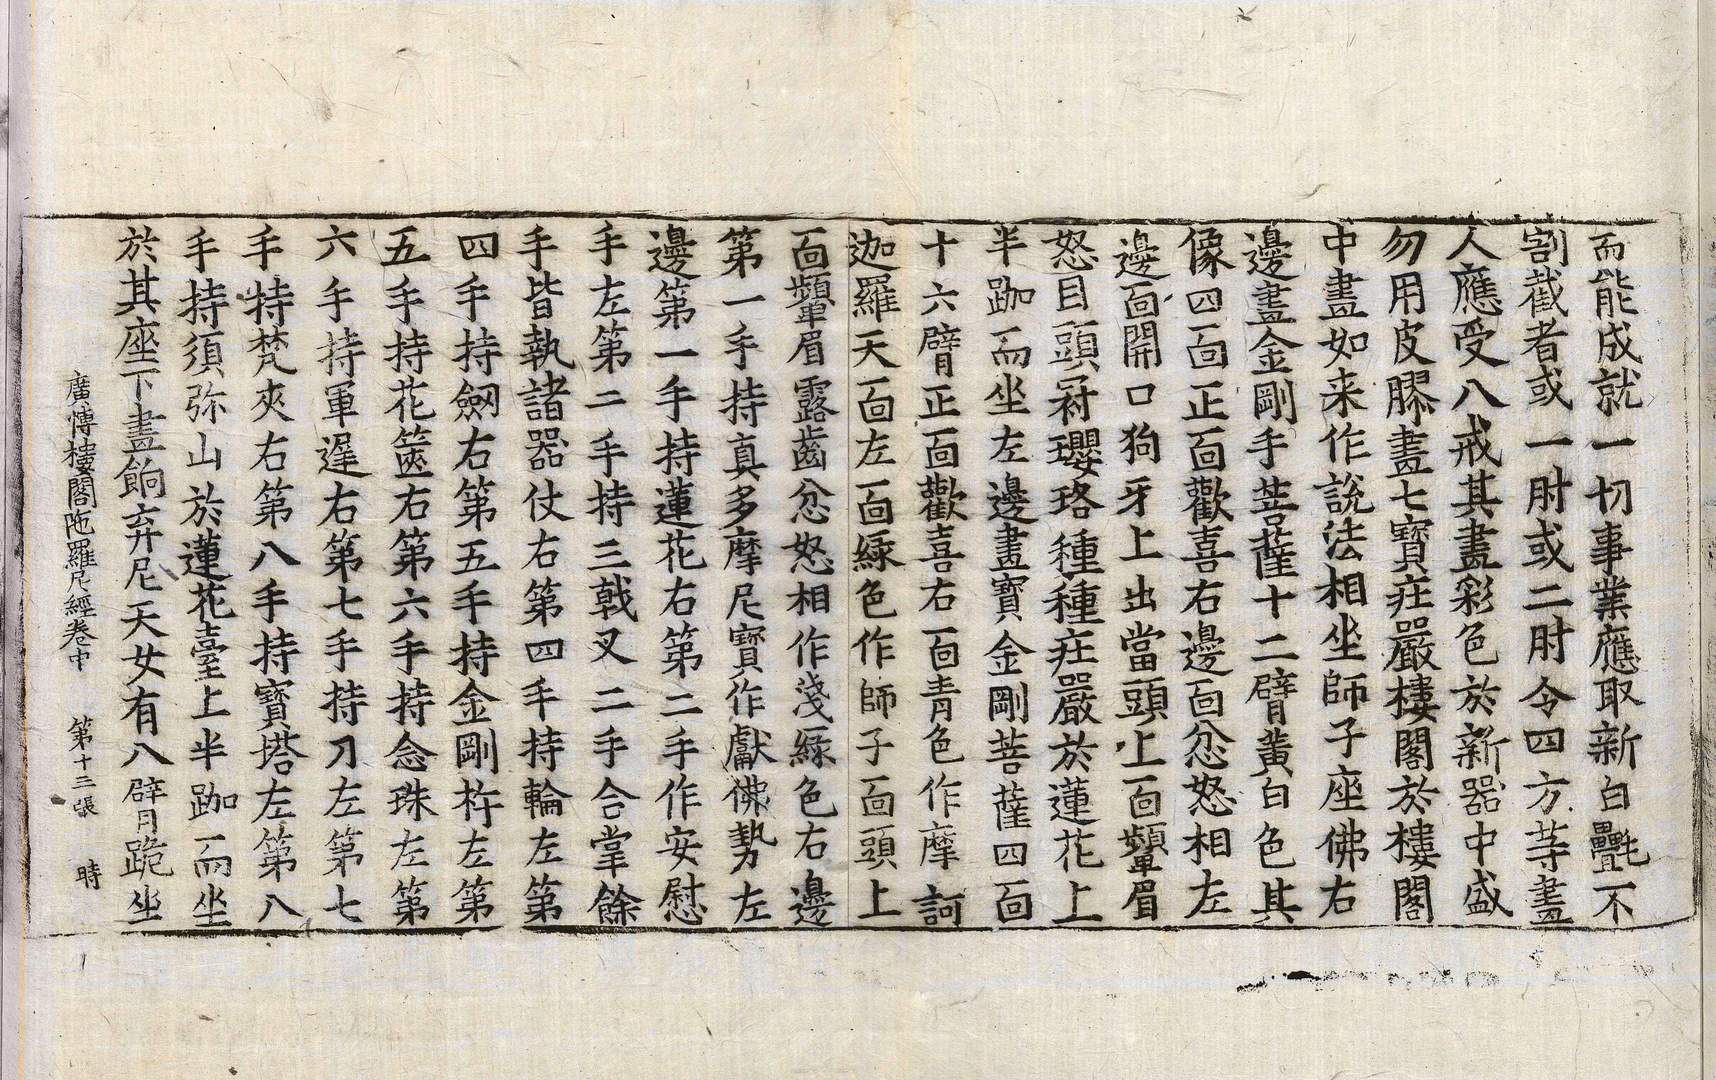 而能成就一切事業應取新白㲲不
割截者或一肘或二肘令四方等畫
人應受八戒其畫彩色於新器中盛
勿用皮膠畫七寶莊嚴樓閣於樓閣
中畫如来作說法相坐師子座佛右
邊畫金剛手菩薩十二臂黃白色其
像四面正面歡喜右邊面忿怒相左
邊面開口狗牙上出當頭上面顰眉
怒目頭冠瓔珞種種莊嚴於蓮花上
半跏而坐左邊畫寶金剛菩薩四面
十六臂正面歡喜右面青色作摩訶
迦羅天面左面綠色作師子面頭上
面顰眉露齒忿怒相作淺綠色右邊
第一手持真多摩尼寶作獻佛勢左
邊第一手持蓮花右第二手作安慰
手左第二手持三戟叉二手合掌餘
手皆執諸器仗右第四手持輪左第
四手持劒右第五手持金剛杵左第
五手持花篋右第六手持念珠左第
六手持軍遅右第七手持刀左第七
手持梵夾右第八手持寶塔左第八
手持須弥山於蓮花臺上半跏而坐
於其座下畫餉弃尼天女有八臂跪坐
廣愽樓閣陁羅尼經卷中 第十三張 時